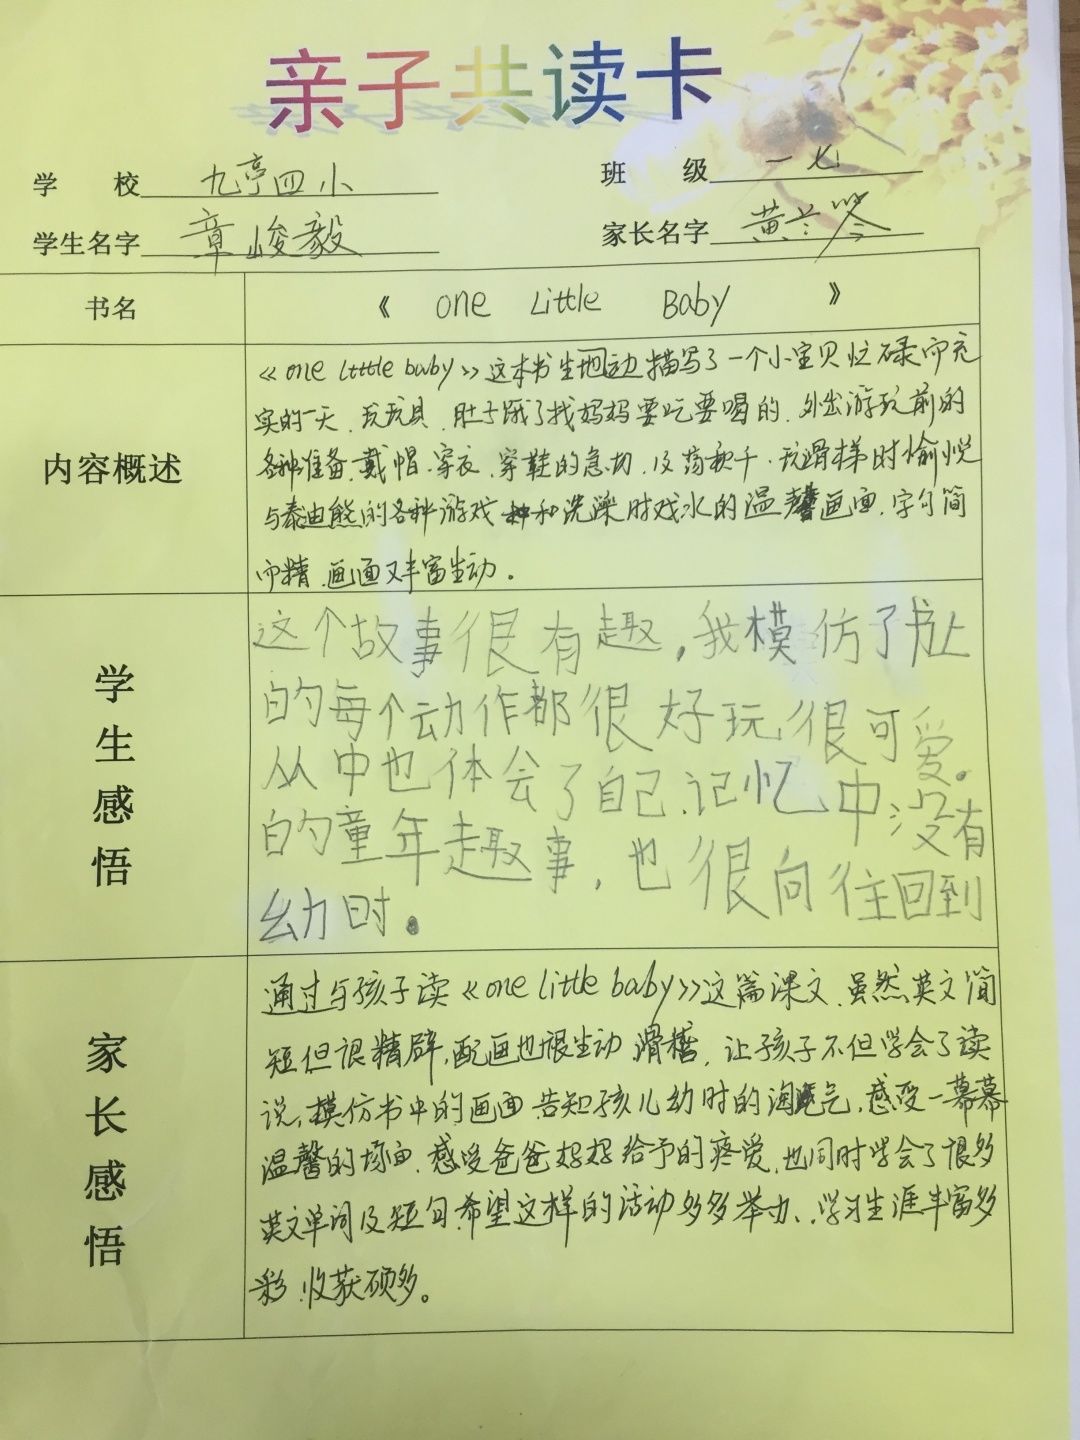 亲子共读卡
学 校 九亭四小 班 级 一七
学生名字 章峻毅 家长名字 黄兰琴
书名 《 one Little Baby 》
内容概述
《one little baby》这本书生地动描写了一个小宝贝忙碌而充
实的一天.玩玩具.肚子饿了找妈妈要吃要喝的.外出游玩前的
各种准备.戴帽.穿衣.穿鞋的急切.及荡秋千.玩滑梯时愉悦
与泰迪熊的各种游戏和洗澡时戏水的温馨画面.字句简
而精.画面又丰富生动。
学生感悟
这个故事很有趣,我模仿了书上
的每个动作都很好玩,很可爱。
从中也体会了自己记忆中没有
的童年趣事,也很向往回到
幼时。
家长感悟
通过与孩子读《one little baby》这篇课文.虽然英文简
短但很精辟,配画也很生动.滑稽.让孩子不但学会了读
说,模仿书中的画面告知孩儿幼时的淘气,感受一幕幕
温馨的场面.感受爸爸妈妈给予的疼爱.也同时学会了很多
英文单词及短句.希望这样的活动多多举办、.学习生涯丰富多
彩.收获硕多。